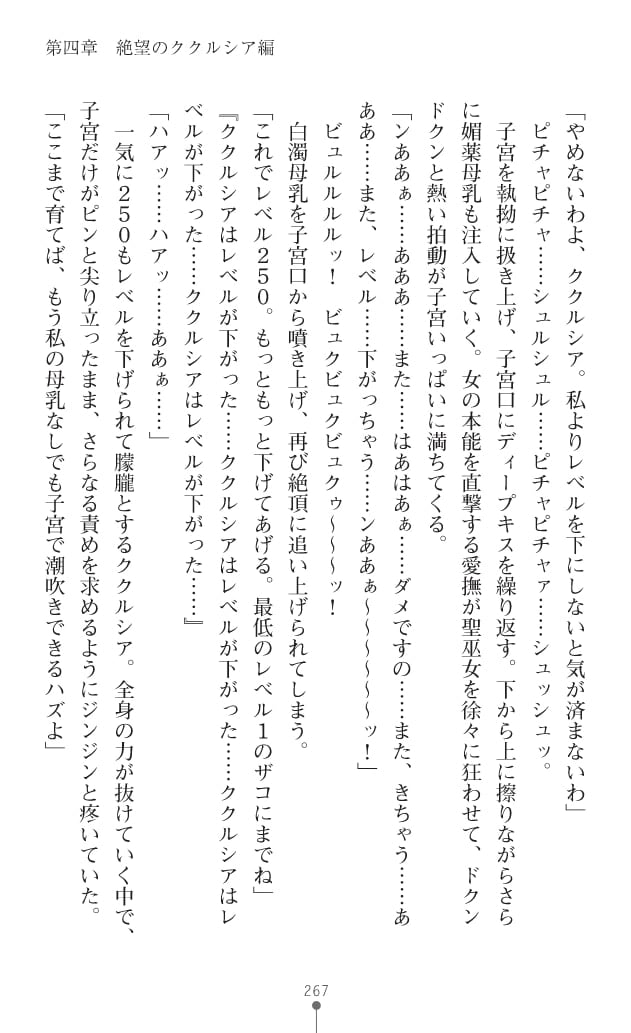 第四章　絶望のククルシア編
「やめないわよ、ククルシア。私よりレベルを下にしないと気が済まないわ」
ピチャピチャ……シュルシュル……ピチャピチャァ……シュッシュッ。
子宮を執拗に扱き上げ、子宮口にディープキスを繰り返す。下から上に擦りながらさら
に媚薬母乳も注入していく。女の本能を直撃する愛撫が聖巫女を徐々に狂わせて、ドクン
ドクンと熱い拍動が子宮いっぱいに満ちてくる。
「ンああぁ……あああ……また……はあはあぁ……ダメですの……また、きちゃう……あ
ああ……また、レベル……下がっちゃう……ンああぁ～～～～～～ッ！」
ビュルルルルッ！　ビュクビュクビュクゥ～～～～ッ！
白濁母乳を子宮口から噴き上げ、再び絶頂に追い上げられてしまう。
「これでレベル２５０。もっともっと下げてあげる。最低のレベル１のザコにまでね」
『ククルシアはレベルが下がった……ククルシアはレベルが下がった……ククルシアはレ
ベルが下がった……ククルシアはレベルが下がった……』
「ハアッ……ハアッ……ああぁ……」
一気に２５０もレベルを下げられて朦朧とするククルシア。全身の力が抜けていく中で、
子宮だけがピンと尖り立ったまま、さらなる責めを求めるようにジンジンと疼いていた。
「ここまで育てば、もう私の母乳なしでも子宮で潮吹きできるハズよ」
267